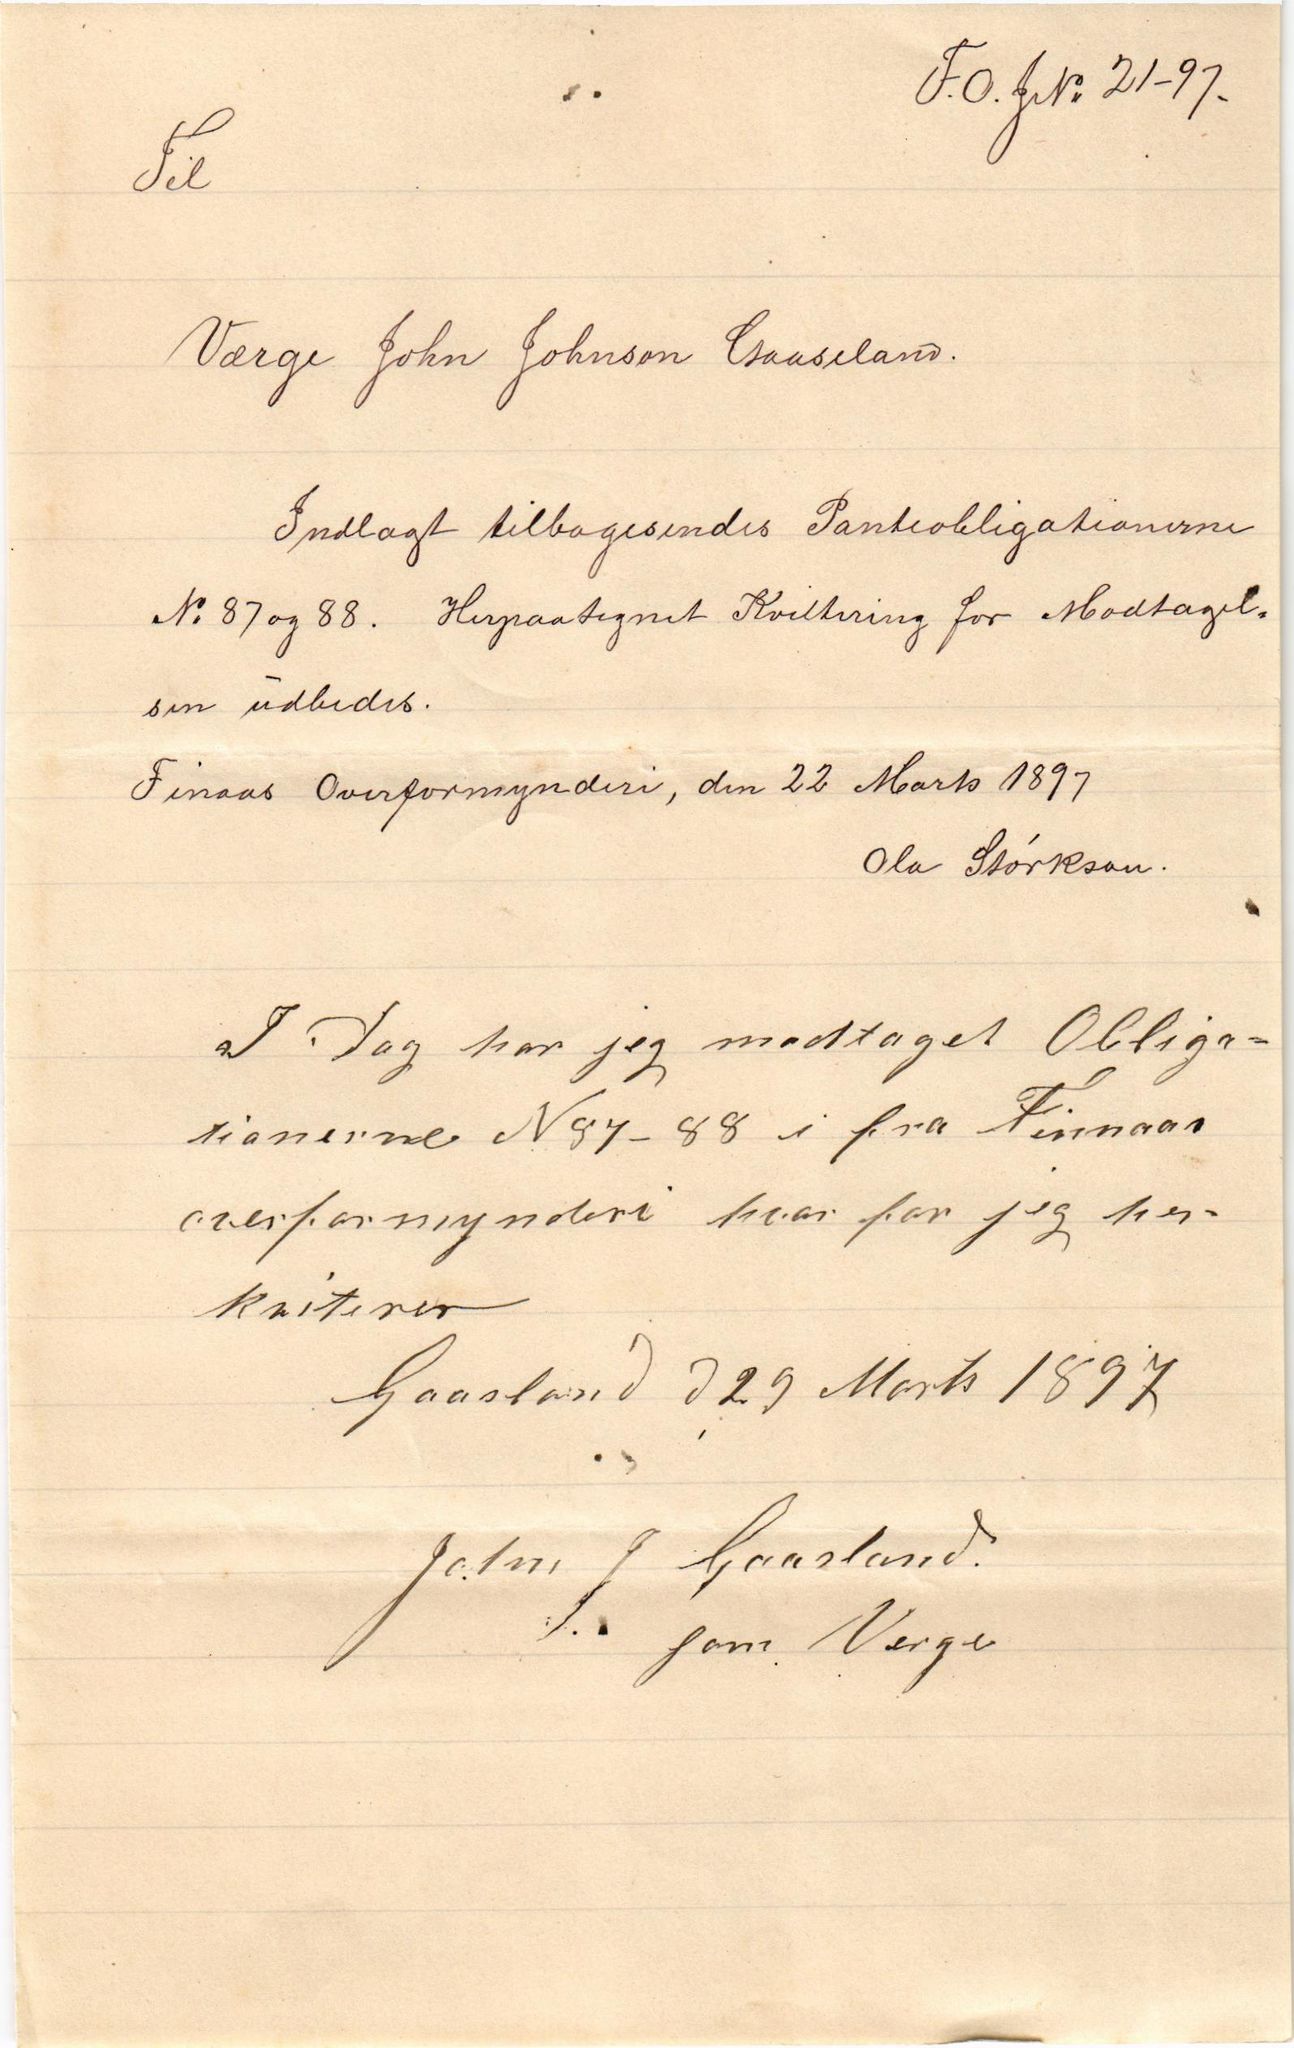 F.O. J.No. 21-97.
Til
Værge John Johnson Gaaseland.
Indlagt tilbagesendes Panteobligationerne
No. 87 og 88. Herpaategnet Kvittering for Modtagel-
sen udbedes.
Finaas Overformynderi, den 22 Marts 1897
Ola Størkson.
I Dag har jeg modtaget Obliga=
tionerne N 87-88 i fra Finnaas
overformynderi hvor for jeg her-
kviterer
Gaasland d 29 Marts 1897
John J Gaasland.
som Verge